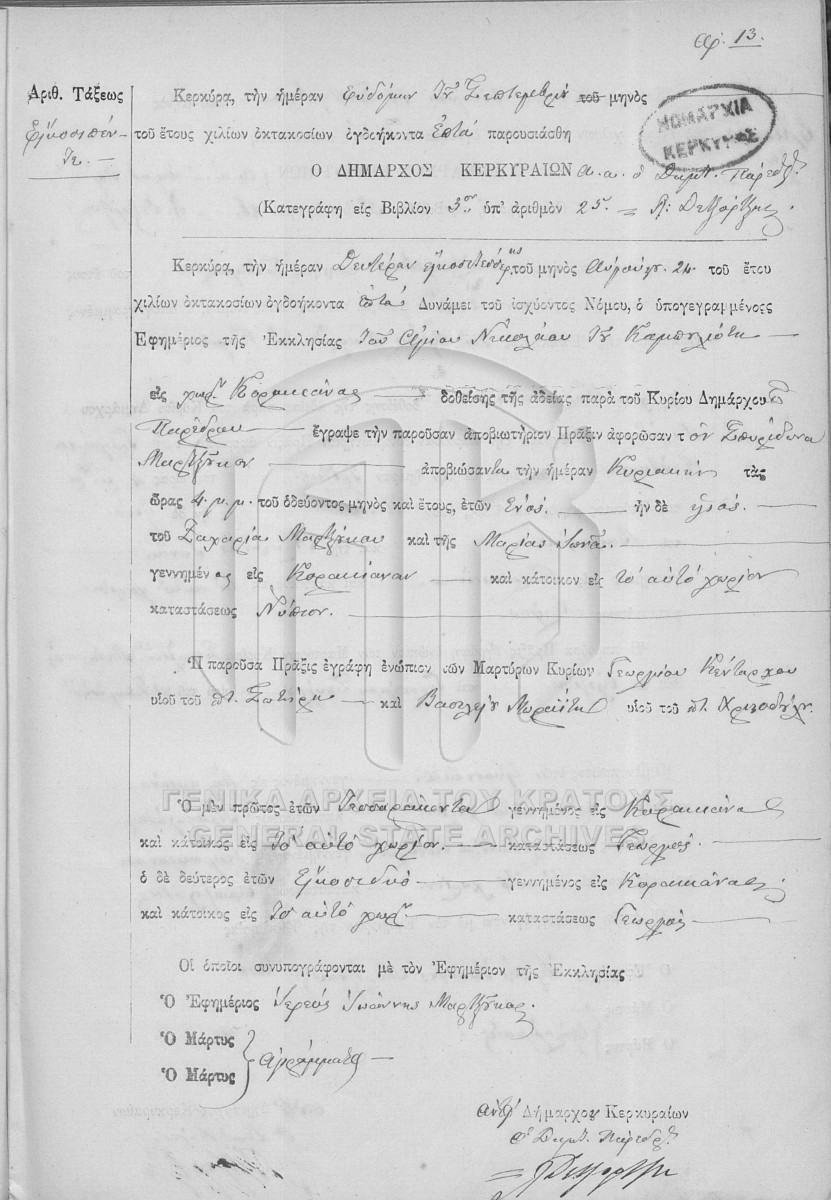 αρ. 13.
Ἀριθ. Τάξεως
Εἰκοσιπέν-
τε. —
Κερκύρᾳ, τὴν ἡμέραν ἑβδόμην τοῦ Σεπτεμβρίου τοῦ μηνὸς
τοῦ ἔτους χιλίων ὀκτακοσίων ὀγδοήκοντα ἑπτὰ παρουσιάσθη
ΝΟΜΑΡΧΙΑ
ΚΕΡΚΥΡΑΣ
Ὁ ΔΗΜΑΡΧΟΣ ΚΕΡΚΥΡΑΙΩΝ α.α. ὁ Δημ. Πάρεδρ.
(Κατεγράφη εἰς Βιβλίον 3ον ὑπ' ἀριθμὸν 25.
Κερκύρᾳ, τὴν ἡμέραν Δευτέραν εἰκοσιτέσσερις τοῦ μηνὸς Αὐγούστ. 24. τοῦ ἔτου
χιλίων ὀκτακοσίων ὀγδοήκοντα ἑπτὰ Δυνάμει τοῦ ἰσχύοντος Νόμου, ὁ ὑπογεγραμμένος
Ἐφημέριος τῆς Ἐκκλησίας τοῦ Ἁγίου Νικολάου τοῦ
εἰς χωρ. Κορακιάνας — δοθείσης τῆς ἀδείας παρὰ τοῦ Κυρίου Δημάρχου
Παρέδρου — ἔγραψε τὴν παροῦσαν ἀποβιωτήριον Πρᾶξιν ἀφορῶσαν τὸν Σπυρίδωνα
Μαρτζούκον — ἀποβιώσαντα τὴν ἡμέραν Κυριακὴν τὰς
ὥρας 4. μ.μ. τοῦ ὁδεύοντος μηνὸς καὶ ἔτους, ἐτῶν ἑνός. — ἦν δὲ υἱός. —
τοῦ Ζαχαρία Μαρτζούκου καὶ τῆς Μαρίας Ἰωνᾶ. —
γεννημένος εἰς Κορακιάναν — καὶ κάτοικον εἰς τὸ αὐτὸ χωρίον
καταστάσεως Νήπιον. —
Ἡ παροῦσα Πρᾶξις ἐγράφη ἐνώπιον τῶν Μαρτύρων Κυρίων Γεωργίου Κένταρχου
υἱοῦ τοῦ ποτ. Σωτήρη — καὶ Βασιλείου Μωραΐτη υἱοῦ τοῦ ποτ. Χριστοδούλ.
ΓΕΝΙΚΑ ΑΡΧΕΙΑ ΤΟΥ ΚΡΑΤΟΥΣ
GENERAL STATE ARCHIVES
Ὁ μὲν πρῶτος ἐτῶν Τεσσαράκοντα γεννημένος εἰς Κορακιάνα
καὶ κάτοικος εἰς τὸ αὐτὸ χωρίον. — καταστάσεως Γεωργός. —
ὁ δὲ δεύτερος ἐτῶν εἰκοσιδύο — γεννημένος εἰς Κορακιάνα
καὶ κάτοικος εἰς τὸ αὐτὸ χωρ. — καταστάσεως Γεωργὸς —
Οἱ ὁποῖοι συνυπογράφονται μὲ τὸν Ἐφημέριον τῆς Ἐκκλησίας
Ὁ Ἐφημέριος Ἱερεὺς Ἰωάννης Μαρτζούκος.
Ὁ Μάρτυς
Ὁ Μάρτυς
ἀγράμματοι —
ἀντὶ Δημάρχου Κερκυραίων
ὁ Δημ. Πάρεδρ.